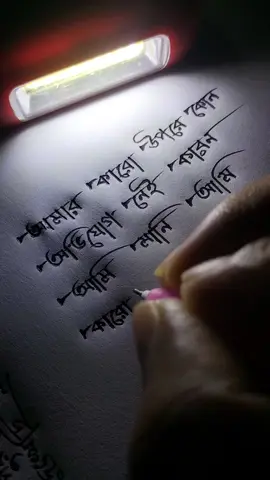 আমার কারো উপরে কোন
অভিযোগ নেই কারন
আমি মানি আমি
কারো